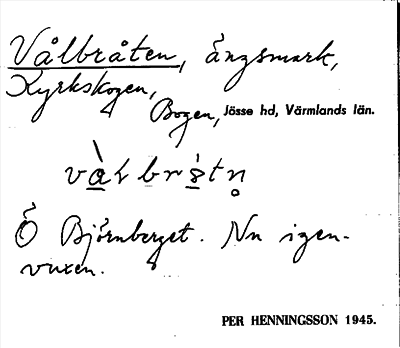 Vålbråten, ängsmark,
Kyrkskogen,
Bogen, Jösse hd, Värmlands län.
Ö Björnberget. Nu igen-
vuxen.
PER HENNINGSSON 1945.